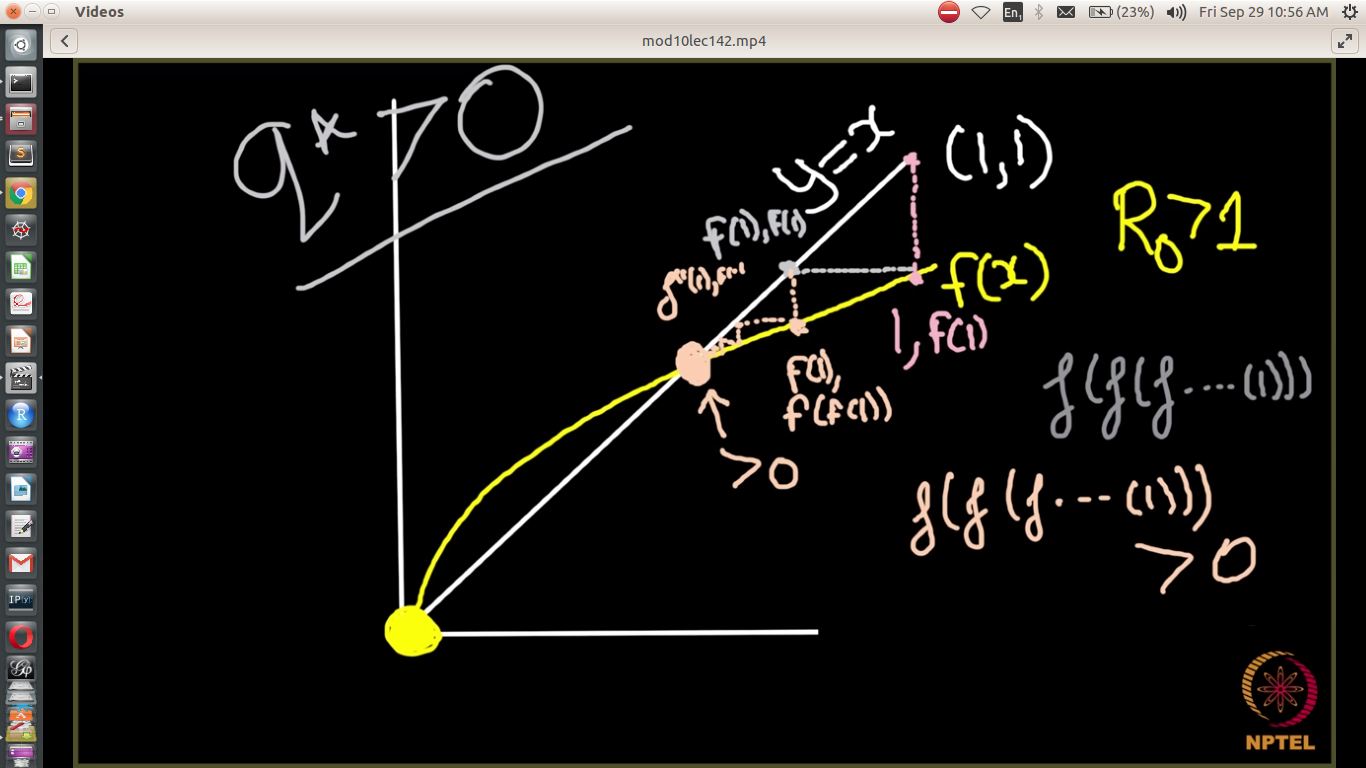 Videos
En1
(23%)
Fri Sep 29 10:56 AM
mod10lec142.mp4
q* > 0
y=x
(1,1)
R0>1
f(1), f(1)
f(x)
1, f(1)
f(1),
f(f(1))
>0
f(f(f-----(1)))
f(f(f---(1)))
>0
NPTEL
R
IP[y]: